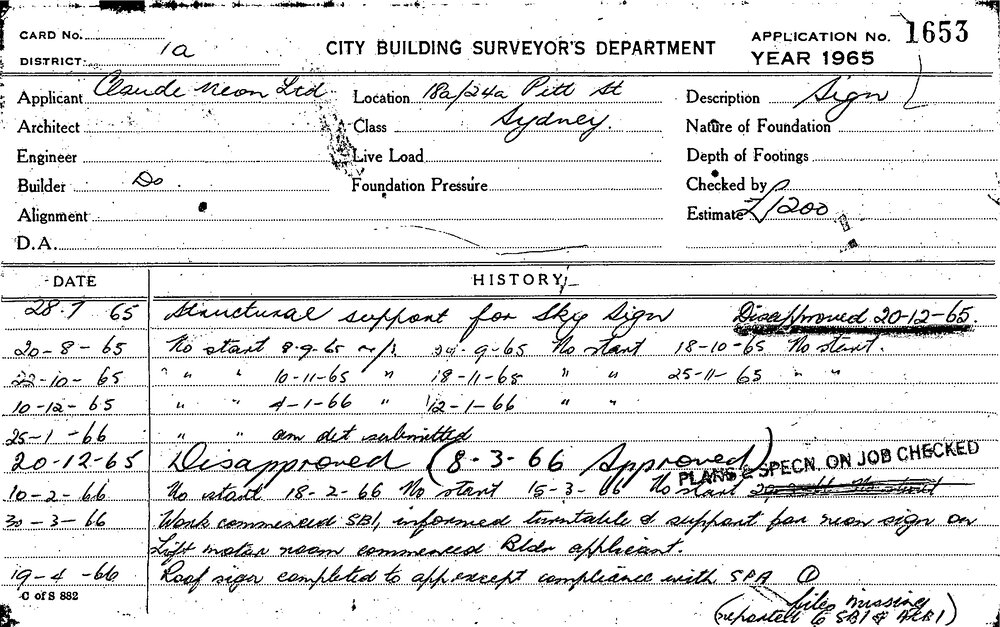 CARD No.
DISTRICT 1a
CITY BUILDING SURVEYOR'S DEPARTMENT
APPLICATION No. 1653
YEAR 1965
Applicant Claude Neon Ltd
Location 18a/24a Pitt St
Description Sign
Architect
Class Sydney.
Nature of Foundation
Engineer
Live Load
Depth of Footings
Builder Do.
Foundation Pressure
Checked by
Alignment
Estimate £1200
D.A.
DATE HISTORY
28.7 65 Structural support for Sky Sign Disapproved 20-12-65.
20-8-65 No start 8-9-65 24-9-65 No start 18-10-65 No start.
22-10-65 " " 10-11-65 " 18-11-65 " " 25-11-65 " "
10-12-65 " " 4-1-66 " 12-1-66 " "
25-1-66 " " am det submitted
20-12-65 Disapproved (8-3-66 Approved)
PLANS & SPECN. ON JOB CHECKED
10-2-66 No start 18-2-66 No start 15-3-66 No start
30-3-66 Work commenced SBI, informed turntable & support for neon sign on
Lift motor room commenced Bldr applicant.
19-4-66 Roof sign completed to app except compliance with SPA ①
C of S 882
files missing
(reported to SBI &